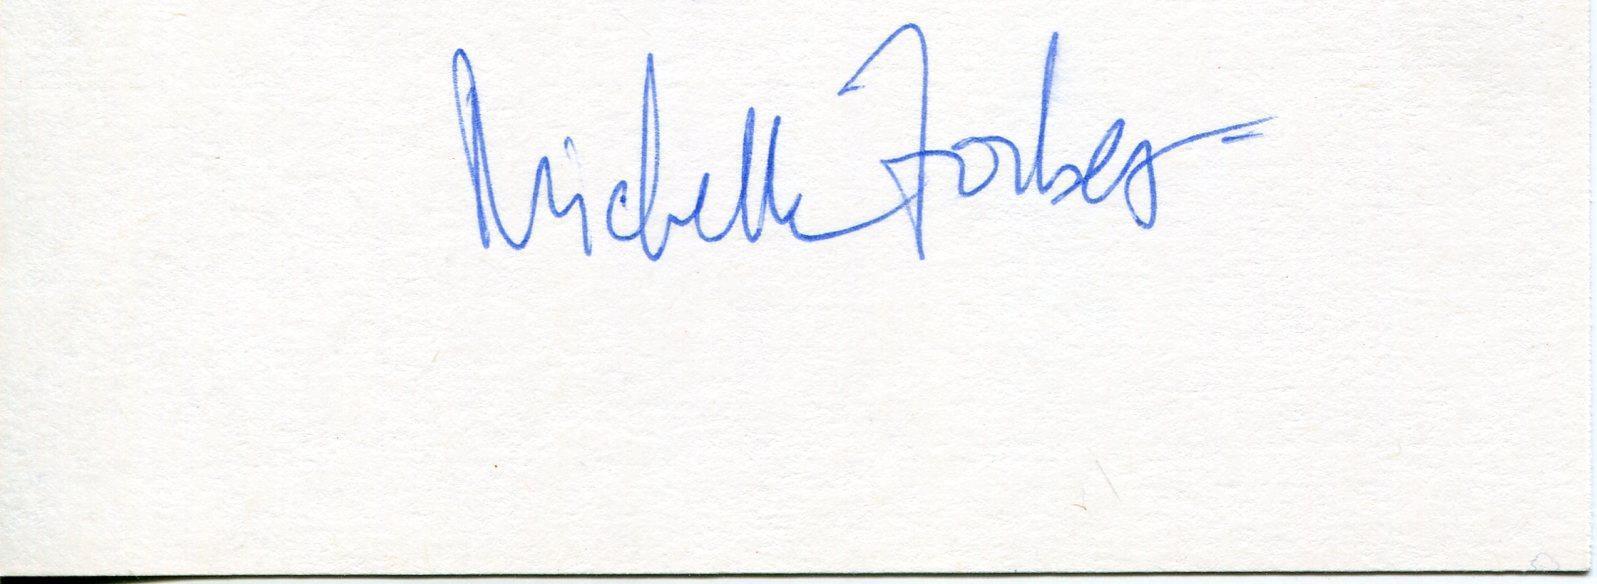 Michelle Forbes